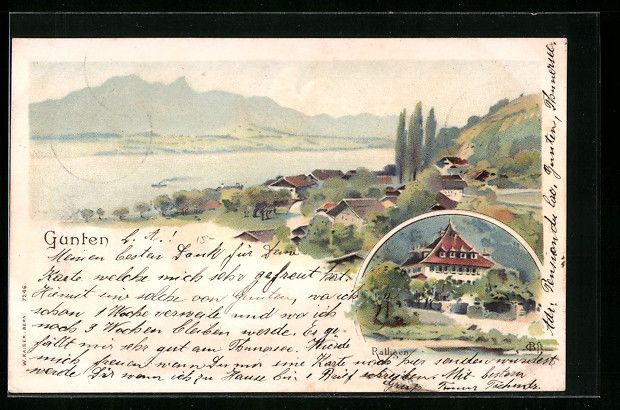 Gunten
L. A.! 15
Meinen besten Dank für Deine
Karte welche mich sehr gefreut hat.
Hiemit eine solche von Gunten, wo ich
schon 1 Woche verweile und wo ich
noch 3 Wochen bleiben werde. Es ge-
fällt mir sehr gut am Thunersee. Würde
mich freuen wenn Du mir eine Karte noch hier senden würdest
werde Dir wenn ich zu Hause bin 1 Brief schreiben. Mit bestem
Gruss
Adr. Pension du lac, Gunten, Thunersee.
Ralligen
CBH
W. KAISER. BERN. 7246.